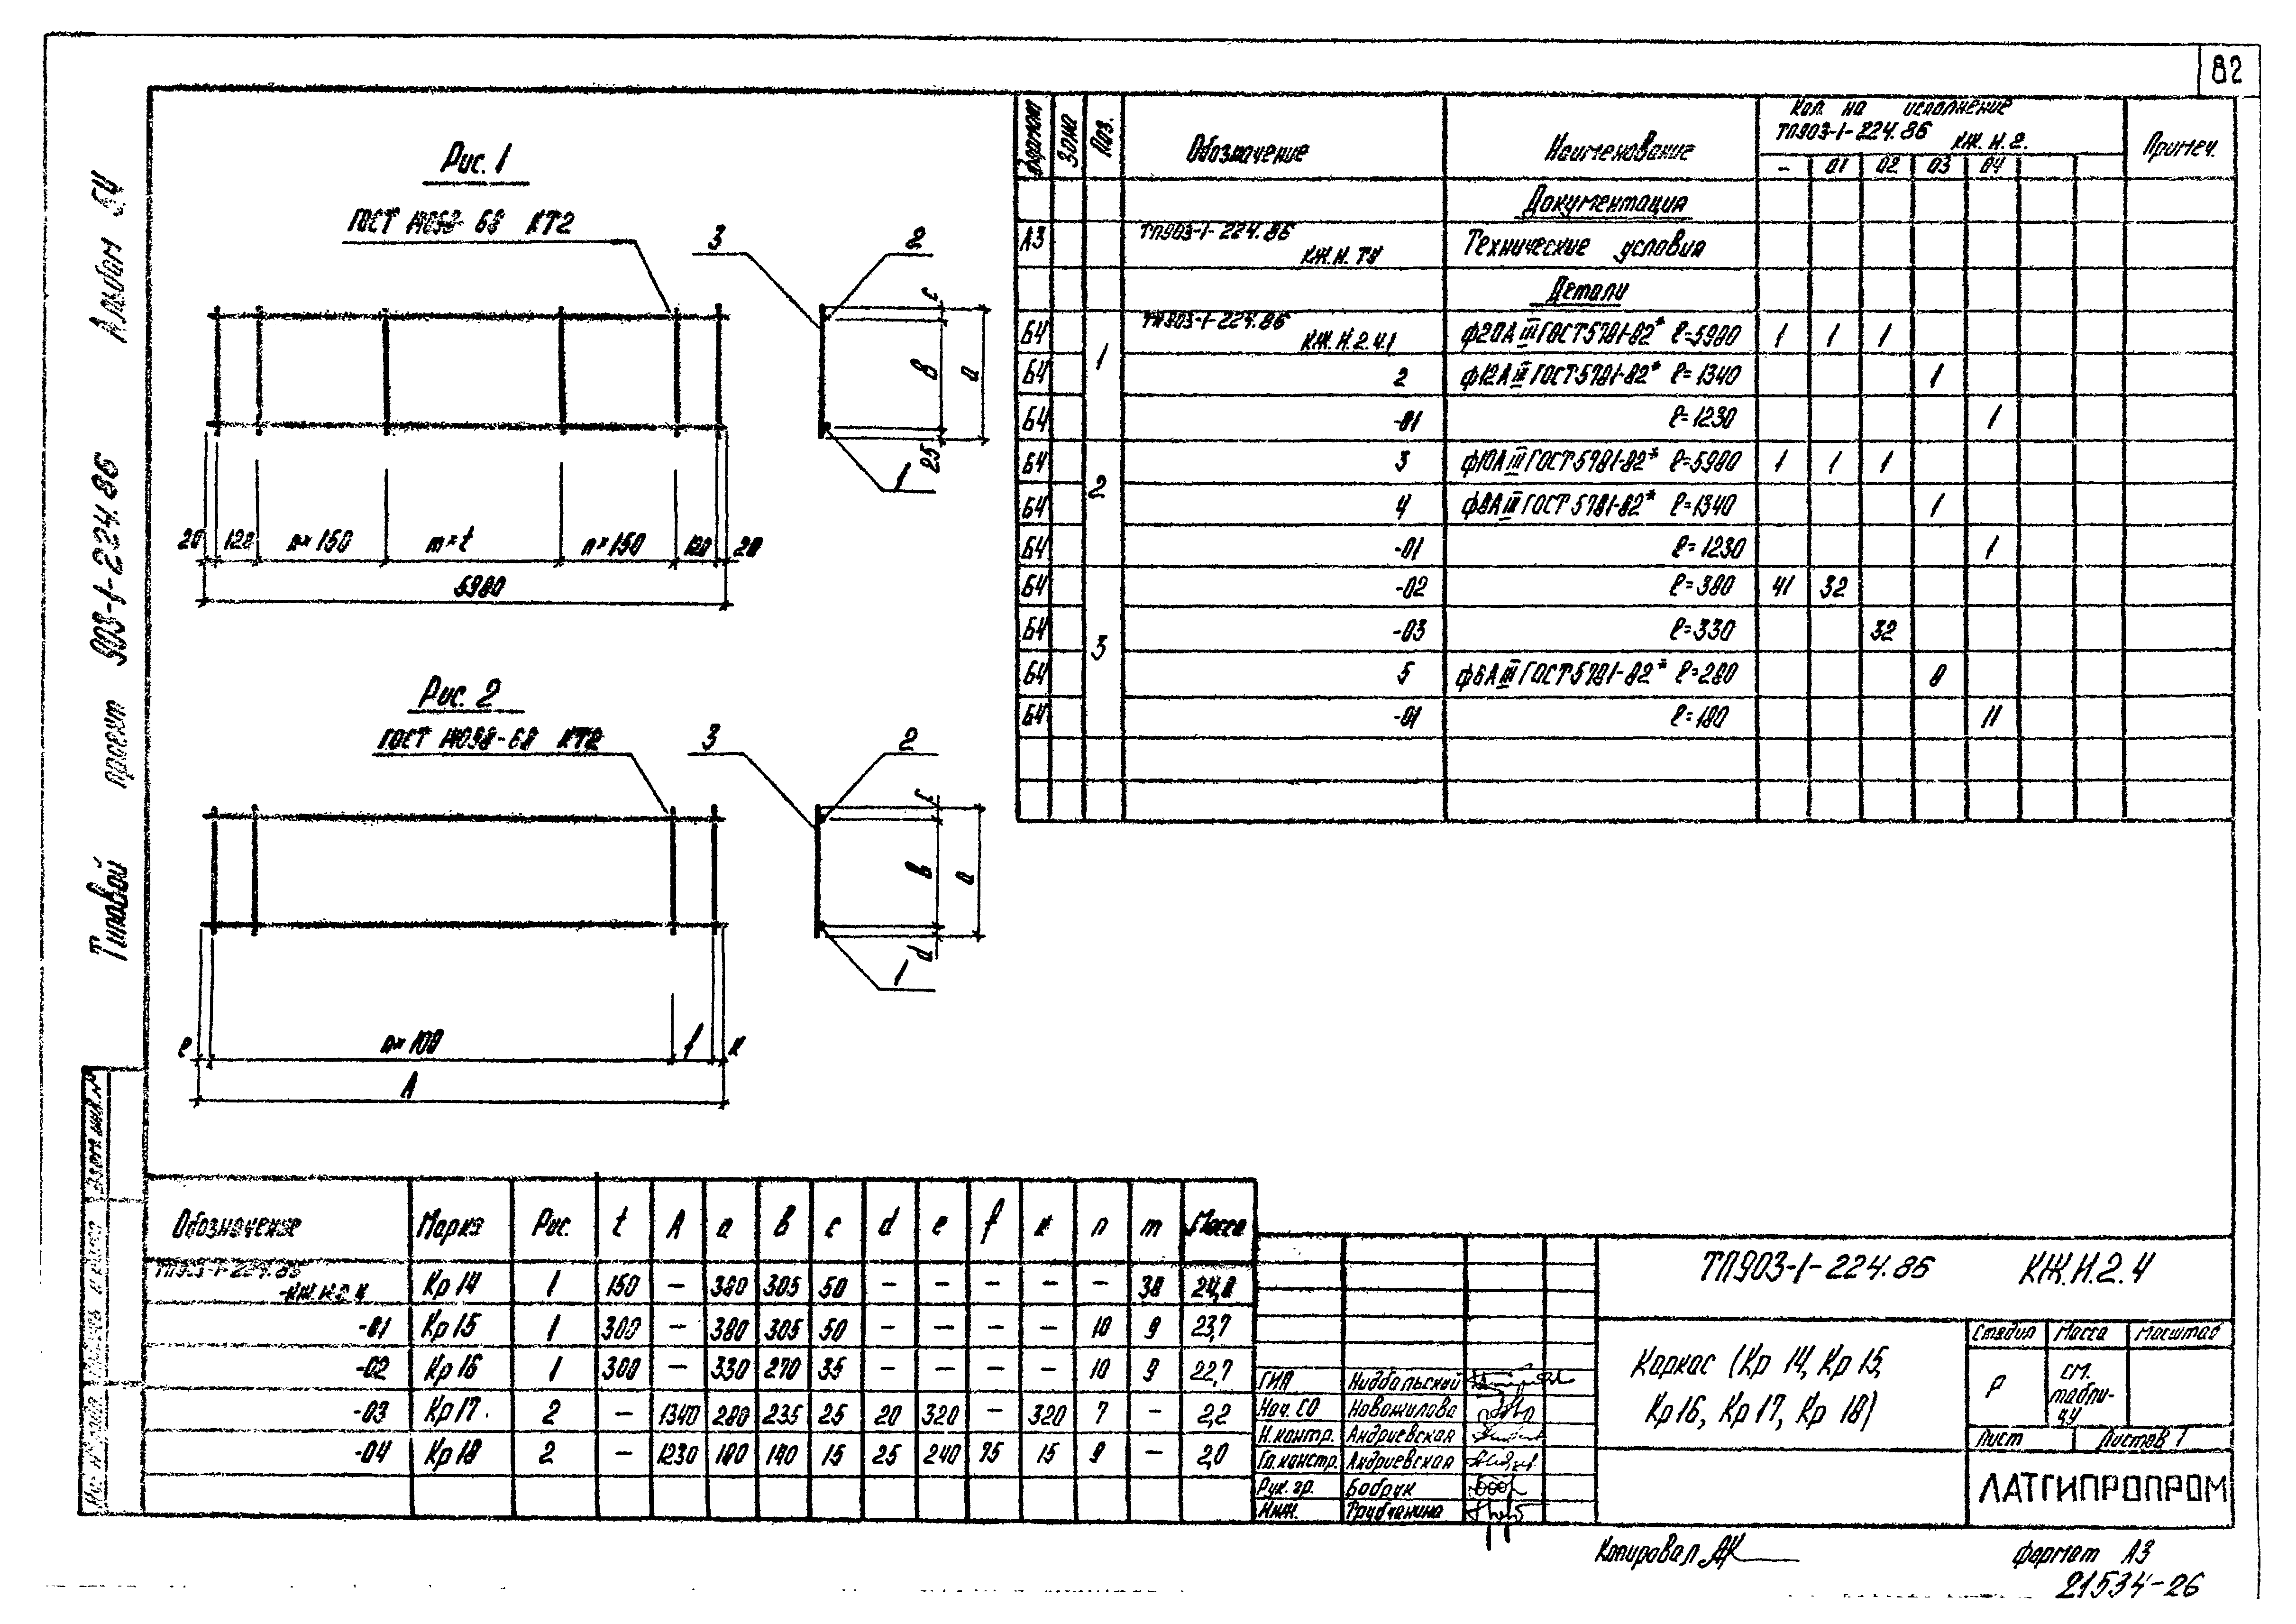 82
Альбом 5,4
Типовой проект 903-1-224.86
Рис. 1
ГОСТ 14098-68 КТ2
3
2
c
в
a
25
1
20
120
n×150
m×t
n×150
120
20
5980
Рис. 2
ГОСТ 14098-68 КТ2
3
2
c
в
a
d
1
e
n×100
f
к
A
Формат Зона Поз. Обозначение Наименование Кол. на исполнение ТП903-1-224.86 КЖ.И.2. Примеч.
- 01 02 03 04
Документация
А3 ТП903-1-224.86 КЖ.И.ТУ Технические условия
Детали
БЧ 1 ТП903-1-224.86 КЖ.И.2.4.1 ф20АIII ГОСТ5781-82* ℓ=5980 1 1 1
БЧ 2 ф12АIII ГОСТ5781-82* ℓ=1340 1
БЧ -01 ℓ=1230 1
БЧ 2 3 ф10АIII ГОСТ5781-82* ℓ=5980 1 1 1
БЧ 4 ф8АIII ГОСТ5781-82* ℓ=1340 1
БЧ -01 ℓ=1230 1
БЧ 3 -02 ℓ=380 41 32
БЧ -03 ℓ=330 32
БЧ 5 ф6АIII ГОСТ5781-82* ℓ=280 8
БЧ -01 ℓ=180 11
Обозначение Марка Рис. t A a в c d e f к n m Масса
ТП903-1-224.86 -КЖ.И.2.4 Кр14 1 150 - 380 305 50 - - - - - 38 24,8
-01 Кр15 1 300 - 380 305 50 - - - - 10 9 23,7
-02 Кр16 1 300 - 330 270 35 - - - - 10 9 22,7
-03 Кр17 2 - 1340 280 235 25 20 320 - 320 7 - 2,2
-04 Кр18 2 - 1230 180 140 15 25 240 75 15 9 - 2,0
ТП903-1-224.86 КЖ.И.2.4
Каркас (Кр 14, Кр 15,
Кр16, Кр17, Кр 18)
Стадия Масса Масштаб
Р см. табли-цу
Лист Листов 1
ЛАТГИПРОПРОМ
ГИП Нидбальский
Нач. СО Новожилова
Н.контр. Андриевская
Гл.констр. Андриевская
Рук. гр. Бобрук
Инж. Трубчанина
Взам. инв.№
Копировал АК
Формат А3
21534-26